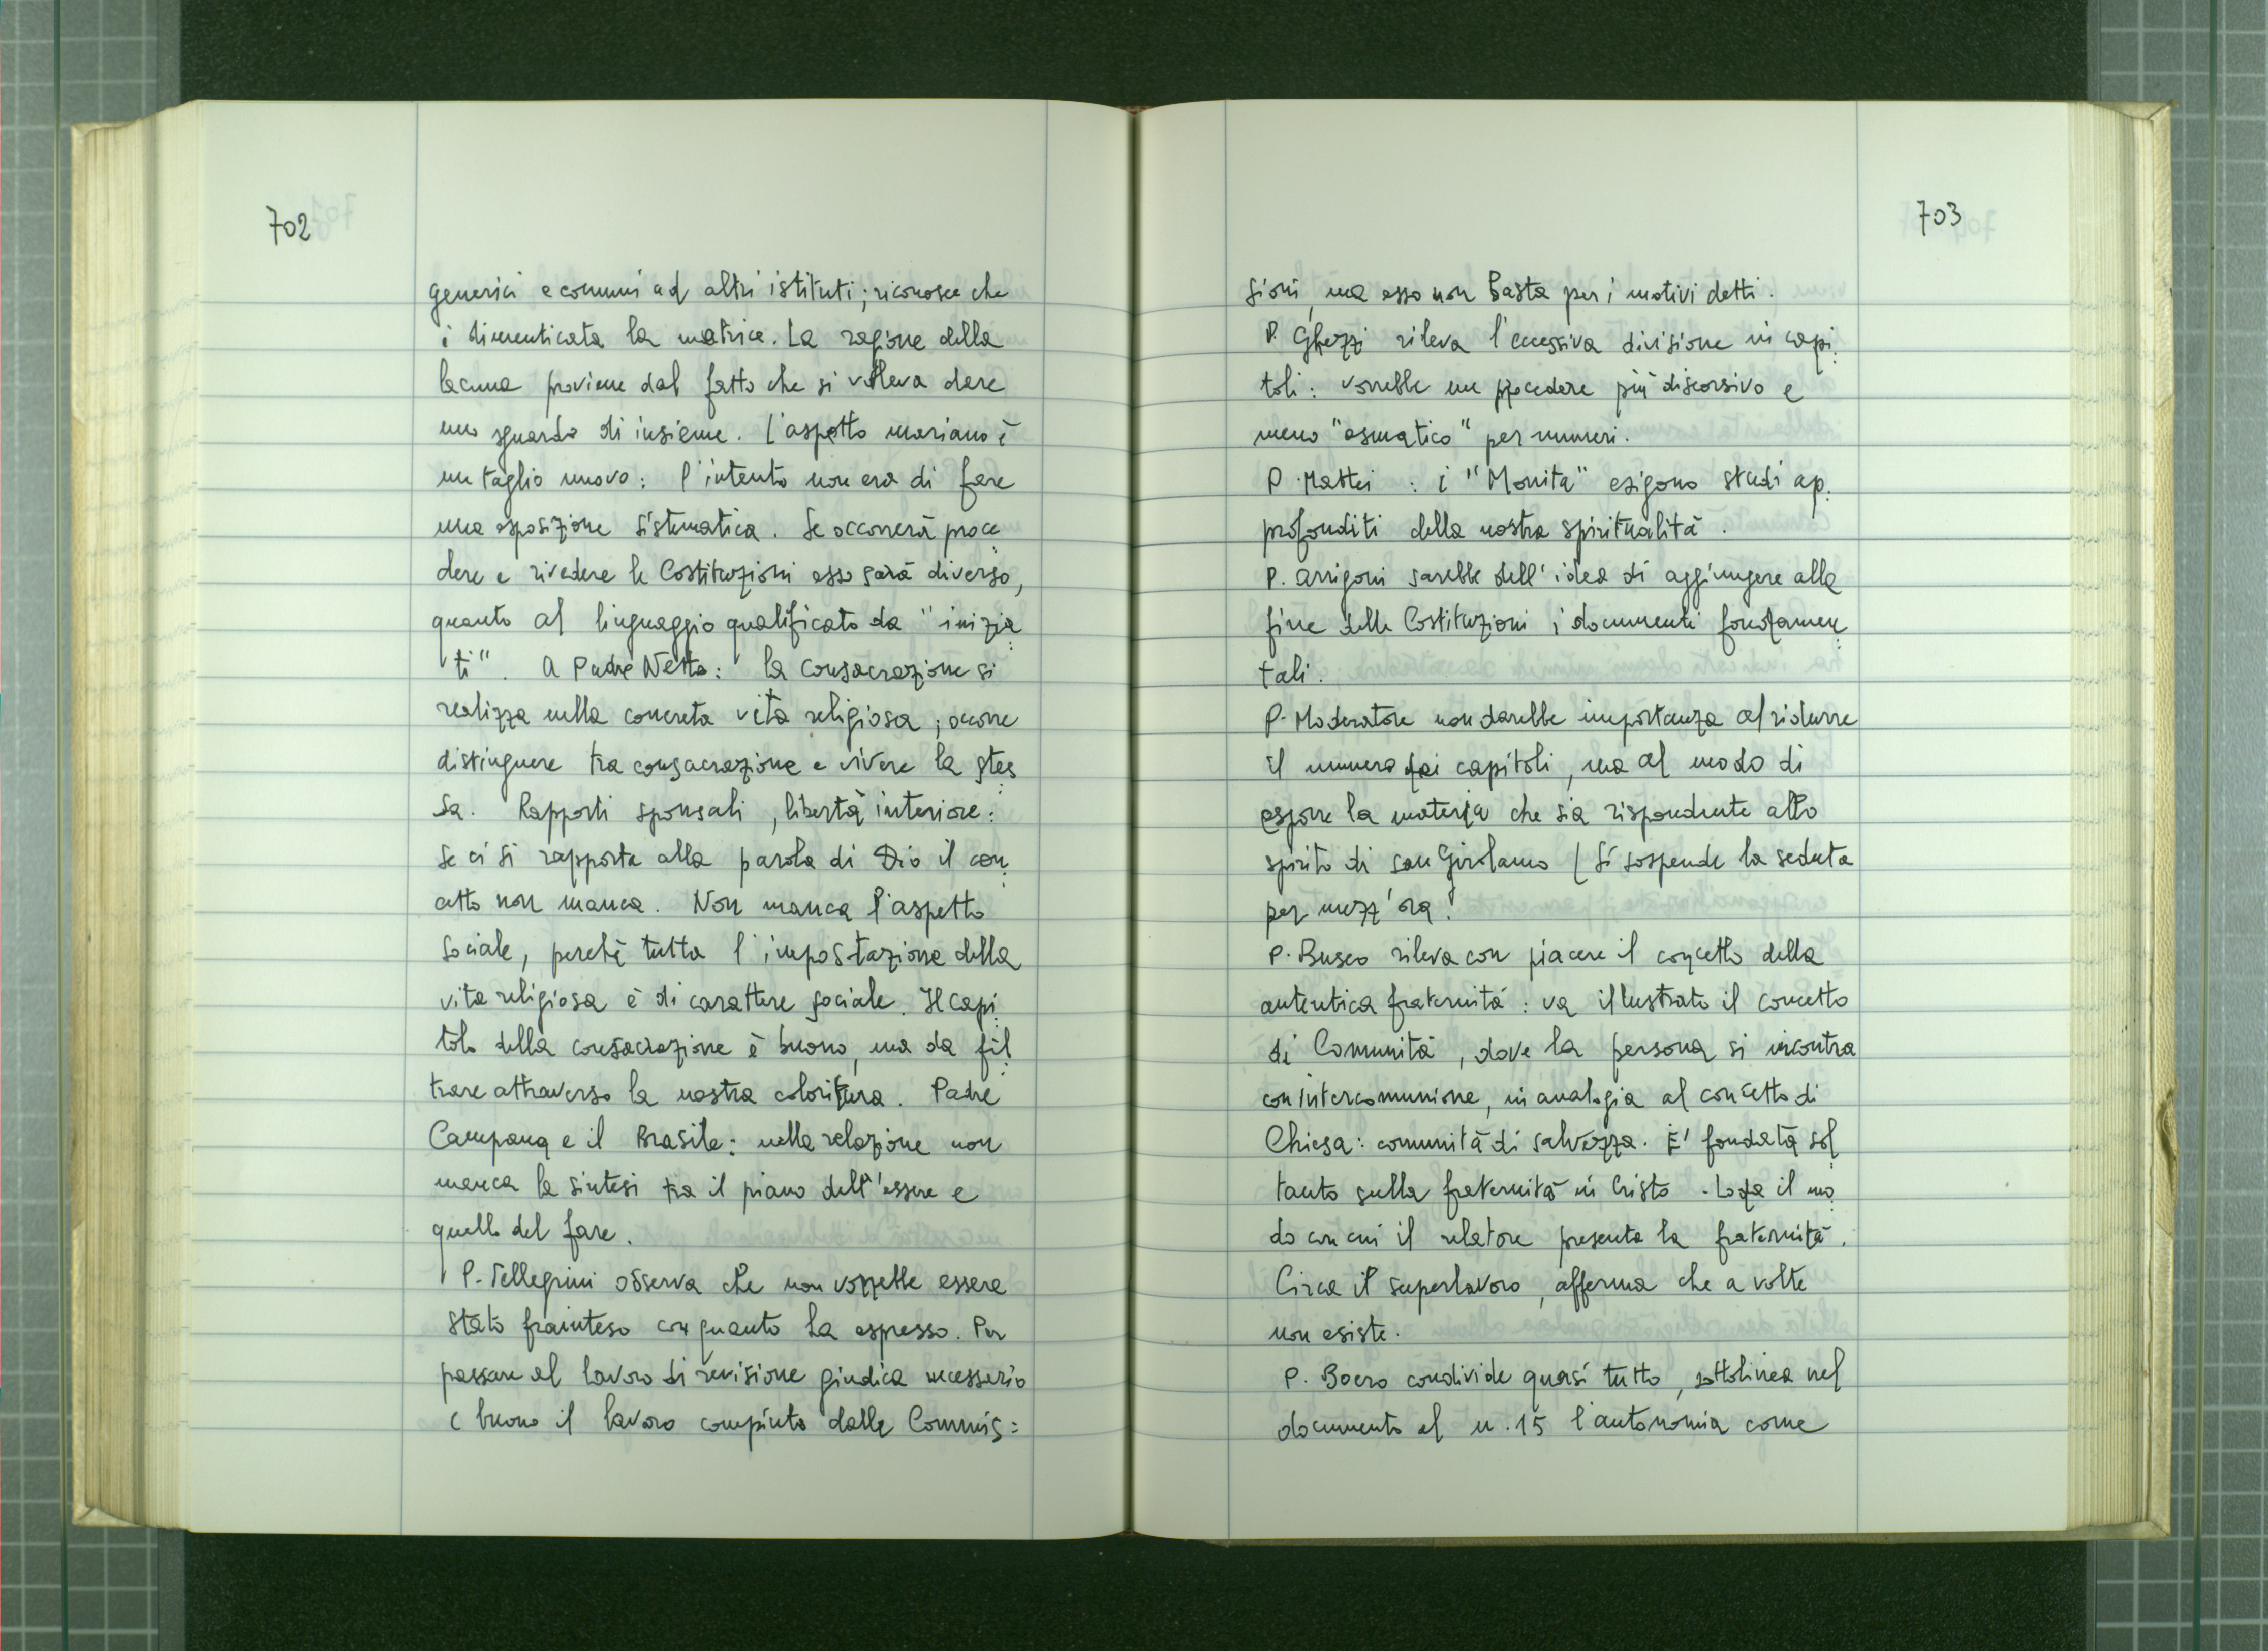 702
generici e comuni ad altri istituti; riconosce che
è dimenticata la matrice. La ragione della
lacuna proviene dal fatto che si voleva dare
uno sguardo di insieme. L'aspetto mariano è
un taglio nuovo: l'intento non era di fare
una esposizione sistematica. Se occorrerà proce
dere e rivedere le Costituzioni esso sarà diverso,
quanto al linguaggio qualificato da "inizia
ti". A Padre Netto: la consacrazione si
realizza nella concreta vita religiosa; occorre
distinguere tra consacrazione e vivere la stes
sa. Rapporti sponsali, libertà interiore:
se ci si rapporta alla parola di Dio il con
cetto non manca. Non manca l'aspetto
sociale, perché tutta l'impostazione della
vita religiosa è di carattere sociale. Il capi
tolo della consacrazione è buono, ma da fil
trare attraverso la nostra coloritura. Padre
Campana e il Brasile: nella relazione non
manca la sintesi tra il piano dell'essere e
quello del fare.
P. Pellegrini osserva che non vorrebbe essere
stato frainteso con quanto ha espresso. Per
passare al lavoro di revisione giudica necessario
e buono il lavoro compiuto dalle Commis=
703
sioni, ma esso non basta per i motivi detti.
P. Ghezzi rileva l'eccessiva divisione in capi
toli: vorrebbe un procedere più discorsivo e
meno "asmatico" per numeri.
P. Mattei : i "Monita" esigono studi ap
profonditi della nostra spiritualità.
P. Arrigoni sarebbe dell'idea di aggiungere alla
fine delle Costituzioni i documenti fondamen
tali.
P. Moderatore non darebbe importanza al ridurre
il numero dei capitoli, ma al modo di
esporre la materia che sia rispondente allo
spirito di san Girolamo (Si sospende la seduta
per mezz'ora.
P. Busco rileva con piacere il concetto della
autentica fraternità: va illustrato il concetto
di Comunità, dove la persona si incontra
con intercomunione, in analogia al concetto di
Chiesa: comunità di salvezza. E' fondata sol
tanto sulla fraternità in Cristo. Loda il mo
do con cui il relatore presenta la fraternità.
Circa il superlavoro, afferma che a volte
non esiste.
P. Boero condivide quasi tutto, sottolinea nel
documento al n. 15 l'autonomia come